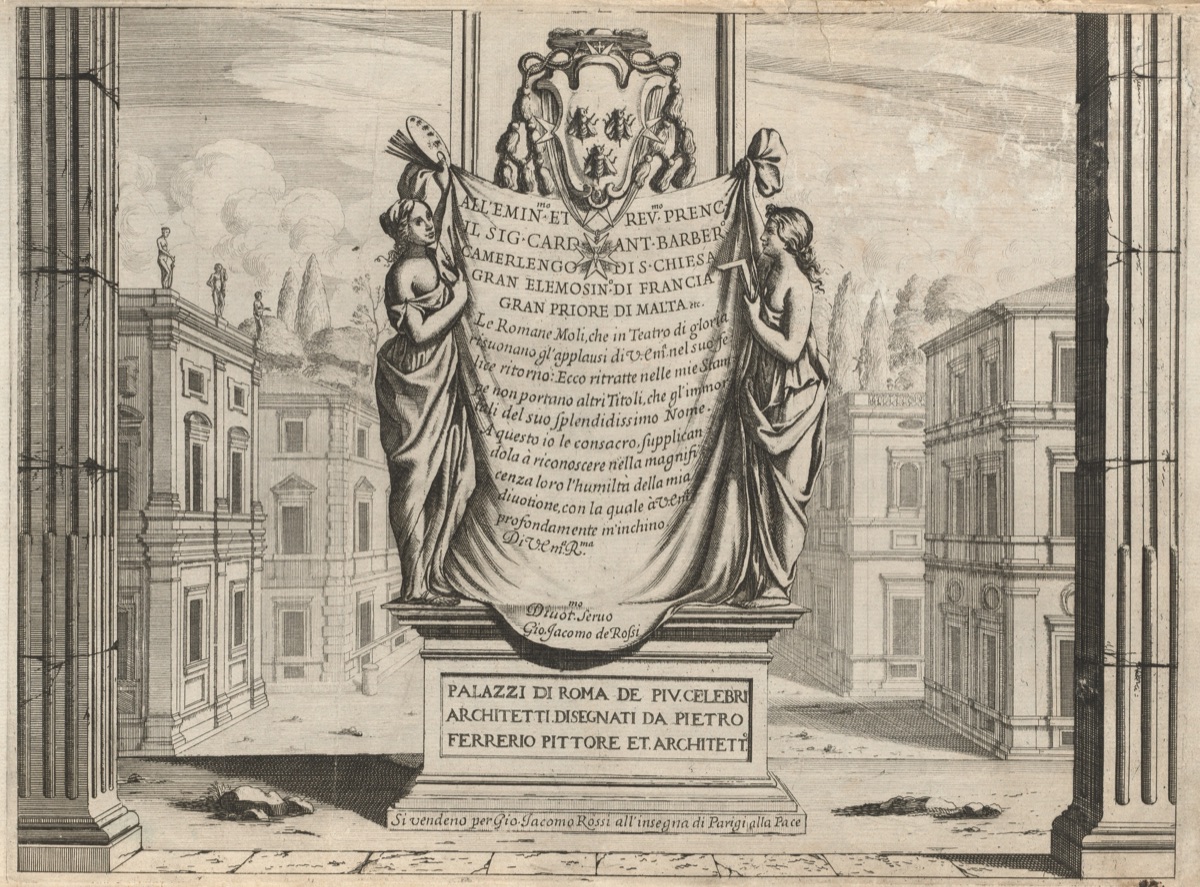 ALL'EMIN.mo ET REV.mo PRENC.
IL SIG. CARD. ANT. BARBER.o
CAMERLENGO DI S. CHIESA
GRAN ELEMOSIN.o DI FRANCIA
GRAN PRIORE DI MALTA etc.
Le Romane Moli, che in Teatro di gloria
risuonano gl'applausi di V. Em. nel suo fe
lice ritorno: Ecco ritratte nelle mie Stam
pe non portano altri Titoli, che gl'immor
tali del suo ſplendidissimo Nome.
A questo io le consacro, ſupplican
dola à riconoscere nella magnifi
cenza loro l'humiltà della mia
diuotione, con la quale à V. Em.
profondamente m'inchino.
Di V. Em. R.ma
Diuot.mo Seruo
Gio. Jacomo de Roſsi
PALAZZI DI ROMA DE PIV. CELEBRI
ARCHITETTI. DISEGNATI DA PIETRO
FERRERIO PITTORE ET. ARCHITETT.o
Si vendeno per Gio. Jacomo Rossi all'insegna di Parigi alla Pace